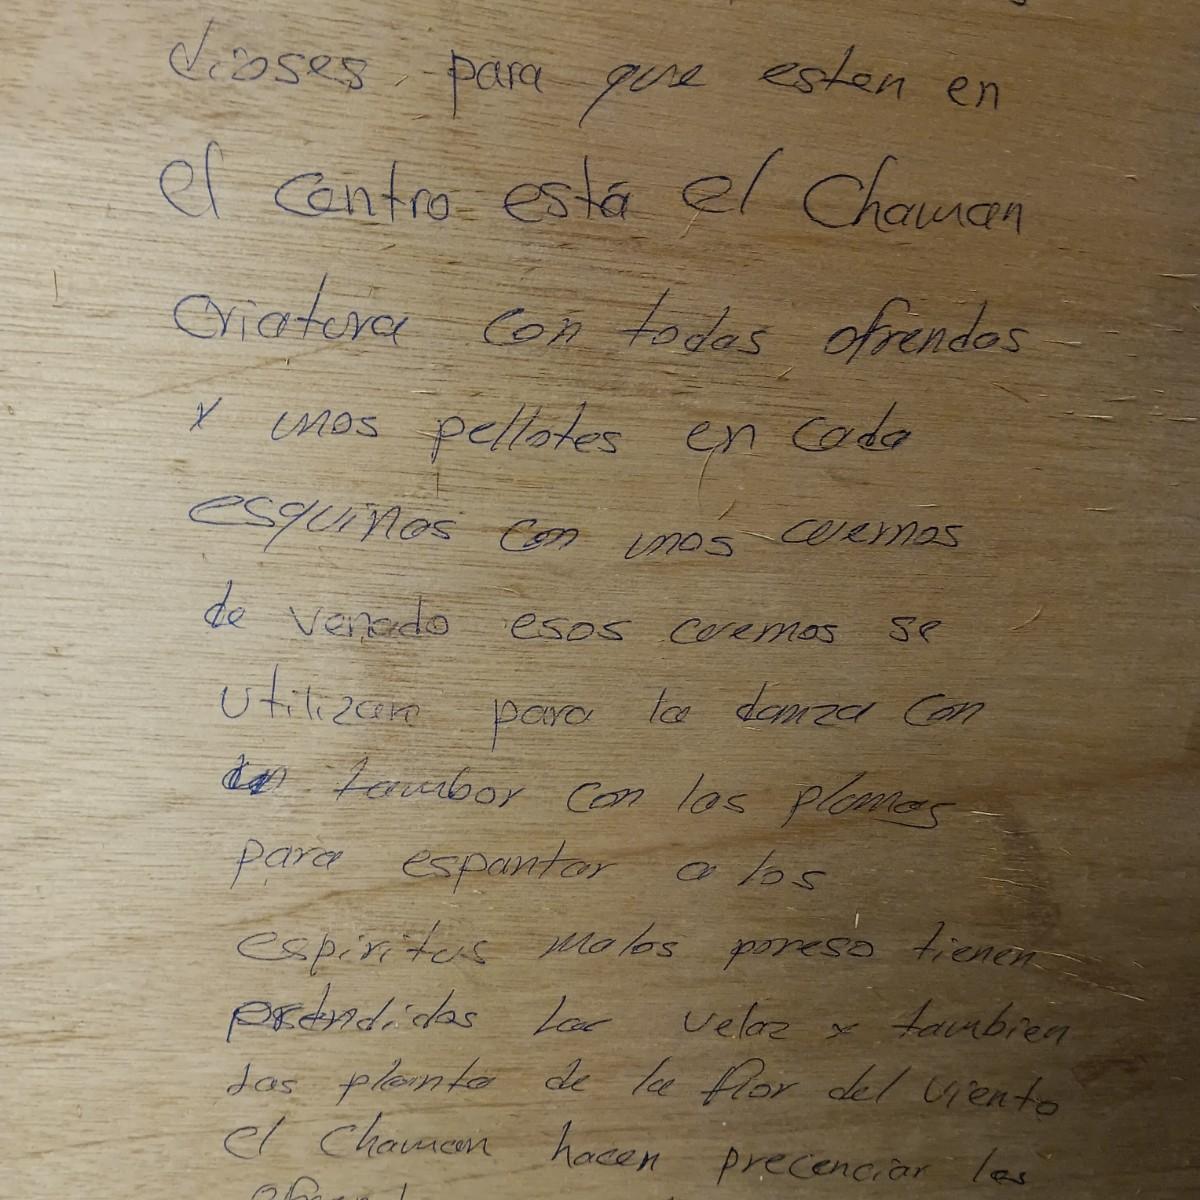 dioses para que esten en
el centro está el Chaman
Criatura con todas ofrendas
y unos pellotes en cada
esquinas con unos cuernos
de venado esos cuernos se
utilizan para la danza con
un tambor con las plomas
para espantar a los
espiritus malos poreso tienen
prendidas las velaz y tambien
las planta de la flor del viento
el Chaman hacen precenciar las